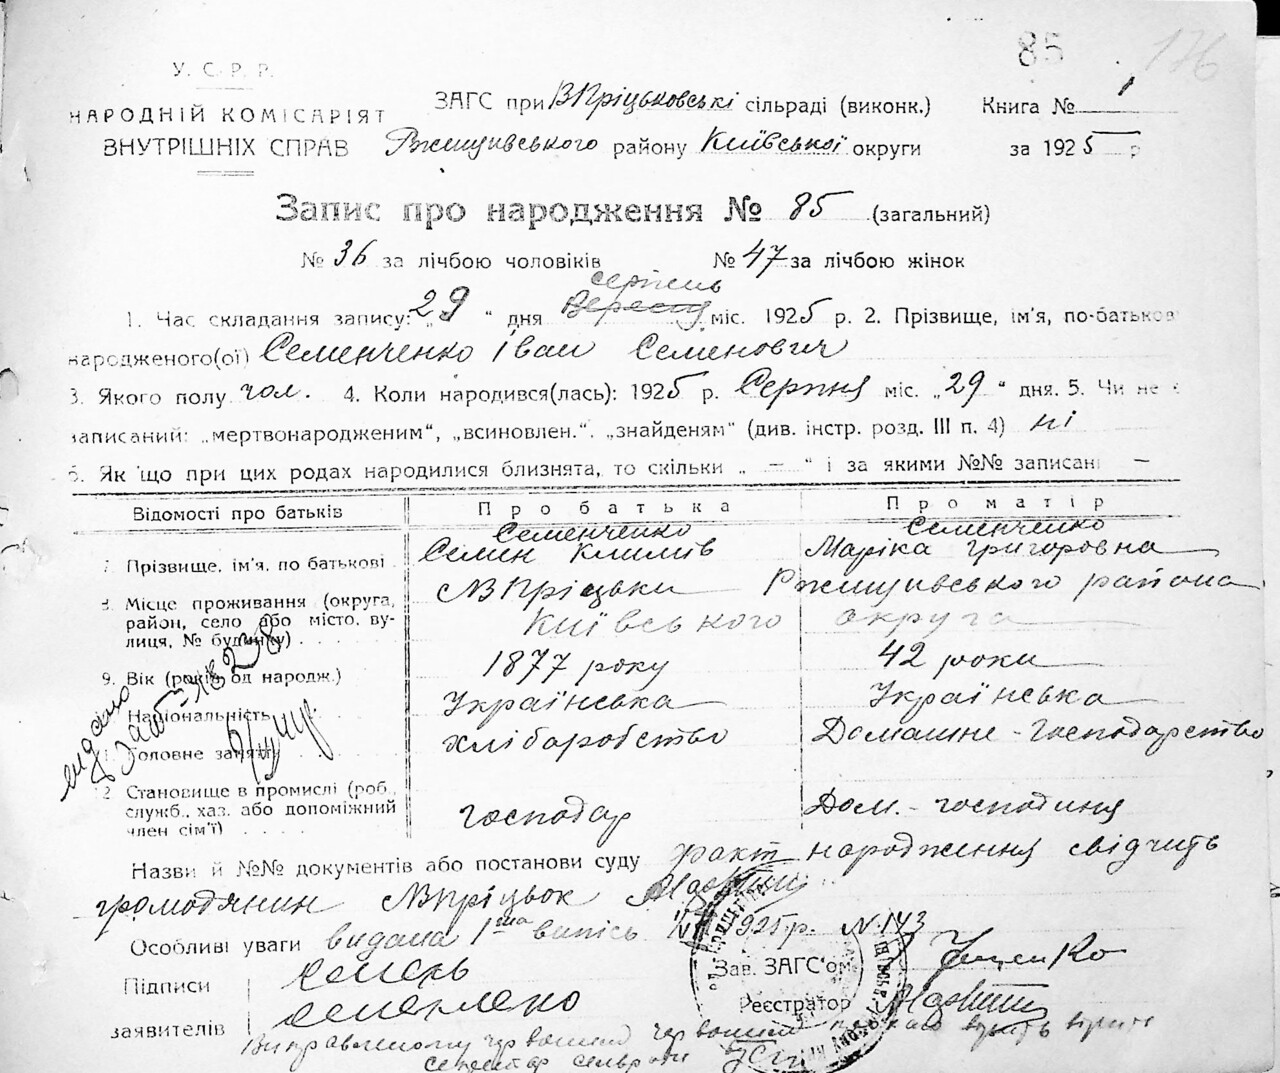 85 176
У. С. Р. Р.
НАРОДНІЙ КОМІСАРІЯТ
ВНУТРІШНІХ СПРАВ
ЗАГС при ВПріцьковські сільраді (виконк.) Книга № 1
Ржищивського району Київської округи за 1925 р
Запис про народження № 85 (загальний)
№ 36 за лічбою чоловіків № 47 за лічбою жінок
серпень
1. Час складання запису: „29 “ дня Вересня міс. 1925 р. 2. Прізвище, ім'я, по-батькові
народженого(ої) Семенченко Іван Семенович
3. Якого полу чол. 4. Коли народився(лась): 1925 р. Серпня міс. „29 “ дня. 5. Чи не є
записаний: „мертвонародженим“, „всиновлен.“, „знайденям“ (див. інстр. розд. III п. 4) ні
6. Як що при цих родах народилися близнята, то скільки „ — “ і за якими №№ записані —
Відомості про батьків Про батька Про матір
Семенченко Семенченко
7. Прізвище, ім'я, по батькові Семен Климів Маріка Григоровна
8. Місце проживання (округа, ВПріцьки Ржищивського района
район, село або місто, ву- Київського округа
лиця, № будинку)
9. Вік (років од народж.) 1877 року 42 роки
Національність Українська Українська
Головне заняття хлібаробство Домашне-господарство
12 Становище в промислі (роб.,
служб., хаз. або допоміжний господар Дом.-господиня
член сім'ї)
видано
Назви й №№ документів або постанови суду факт народження свідчить
громодянин ВПріцьок
Особливі уваги видана 1ша випісь 1925 р. N 143
Підписи семень
Зав. ЗАГС'ом Ященко
Реєстратор
заявителів семенченко
секретар сільради